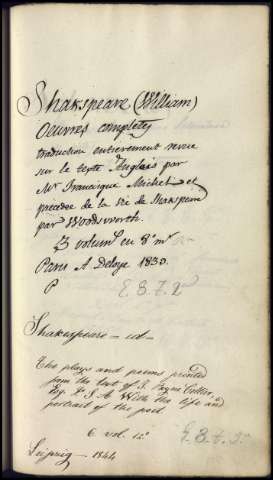 Shakspeare (William)
Oeuvres completes
traduction entierement revue
sur le texte Anglais par
Mr. Francisque Michel et
précédée de la vie de Shakspeare
par Woodsworth.
3 volumes en 8º
Paris A Deloye 1839.
P
E. 8. 7. 2
Shakespeare — id —
The plays and poems printed
from the text of J. Payne Collier,
Esq. F. S. A. With the life and
portrait of the poet
6 vol. 12º
Leipzig — 1844